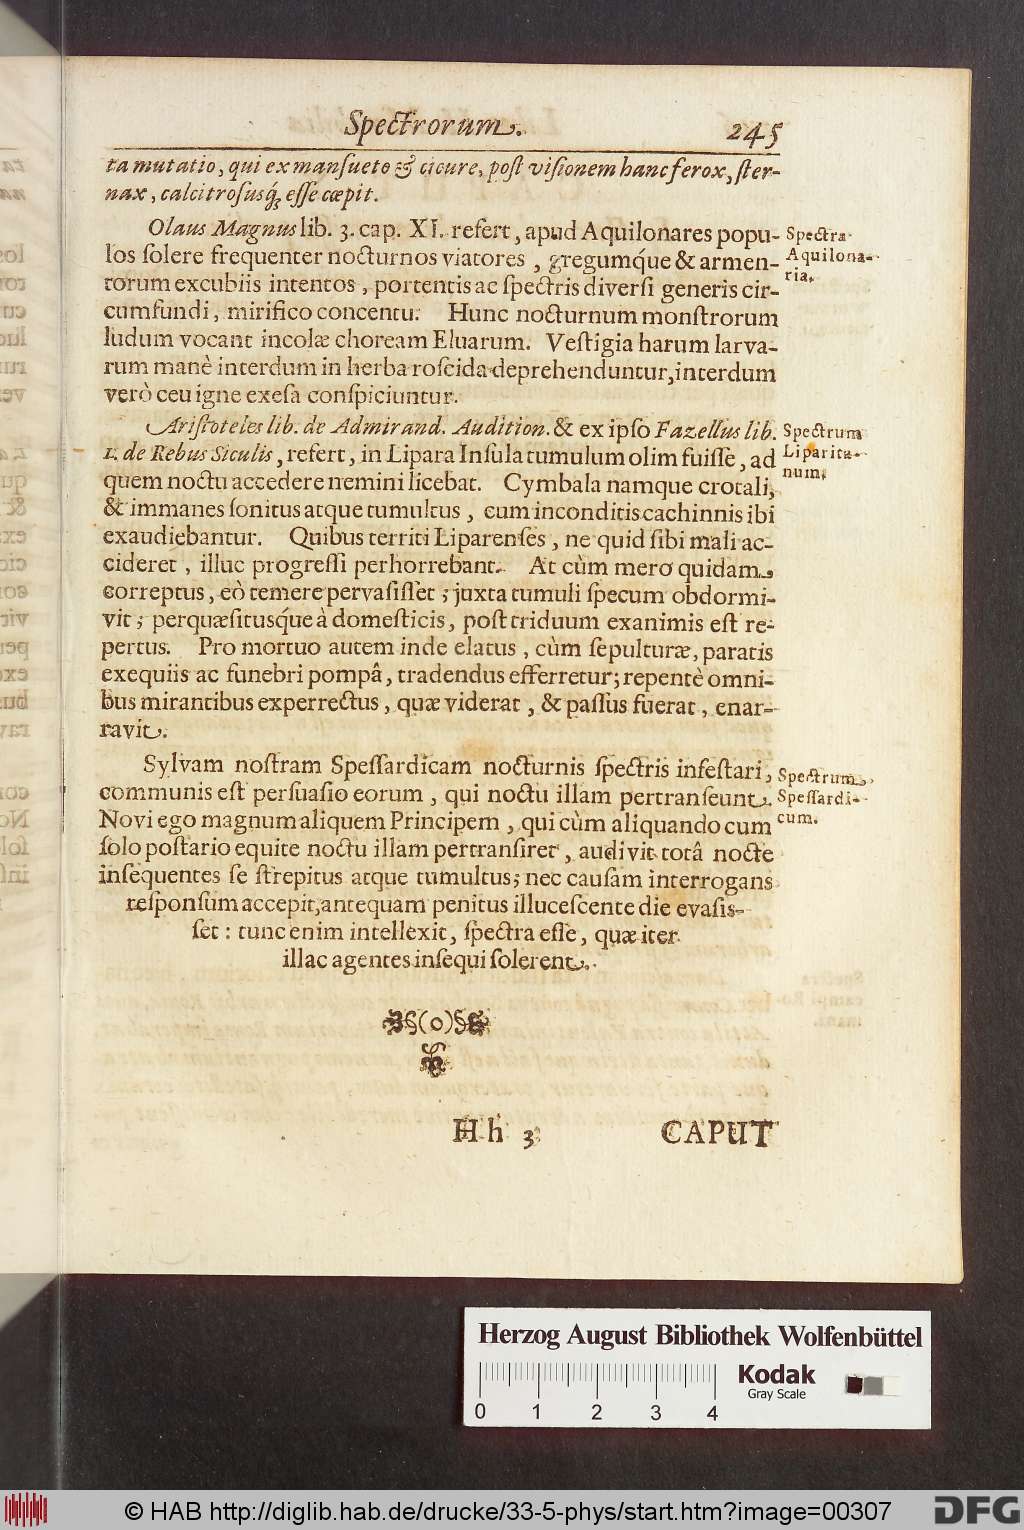 Spectrorum. 245
ta mutatio, qui ex mansueto & cicure, post visionem hanc ferox, ster-
nax, calcitrosusq́; esse cœpit.
Olaus Magnus lib. 3. cap. XI. refert, apud Aquilonares popu-
los solere frequenter nocturnos viatores, gregumq́ue & armen-
torum excubiis intentos, portentis ac spectris diversi generis cir-
cumfundi, mirifico concentu. Hunc nocturnum monstrorum
ludum vocant incolæ choream Eluarum. Vestigia harum larva-
rum manè interdum in herba roscida deprehenduntur, interdum
verò ceu igne exesa conspiciuntur.
Spectra
Aquilona-
ria.
Aristoteles lib. de Admirand. Audition. & ex ipso Fazellus lib.
1. de Rebus Siculis, refert, in Lipara Insula tumulum olim fuisse, ad
quem noctu accedere nemini licebat. Cymbala namque crotali,
& immanes sonitus atque tumultus, cum inconditis cachinnis ibi
exaudiebantur. Quibus territi Liparenses, ne quid sibi mali ac-
cideret, illuc progressi perhorrebant. At cùm mero quidam
correptus, eò temere pervasisset; juxta tumuli specum obdormi-
vit; perquæsitusq́ue à domesticis, post triduum exanimis est re-
pertus. Pro mortuo autem inde elatus, cùm sepulturæ, paratis
exequiis ac funebri pompâ, tradendus efferretur; repentè omni-
bus mirantibus experrectus, quæ viderat, & passus fuerat, enar-
ravit.
Spectrum
Liparita-
num.
Sylvam nostram Spessardicam nocturnis spectris infestari,
communis est persuasio eorum, qui noctu illam pertranseunt.
Novi ego magnum aliquem Principem, qui cùm aliquando cum
solo postario equite noctu illam pertransiret, audivit totâ nocte
insequentes se strepitus atque tumultus; nec causam interrogans
responsum accepit, antequam penitus illucescente die evasis-
set: tunc enim intellexit, spectra esse, quæ iter
illac agentes insequi solerent.
Spectrum
Spessardi-
cum.
§(o)§
Hh 3 CAPUT
Herzog August Bibliothek Wolfenbüttel
Kodak
Gray Scale
0 1 2 3 4
© HAB http://diglib.hab.de/drucke/33-5-phys/start.htm?image=00307 DFG